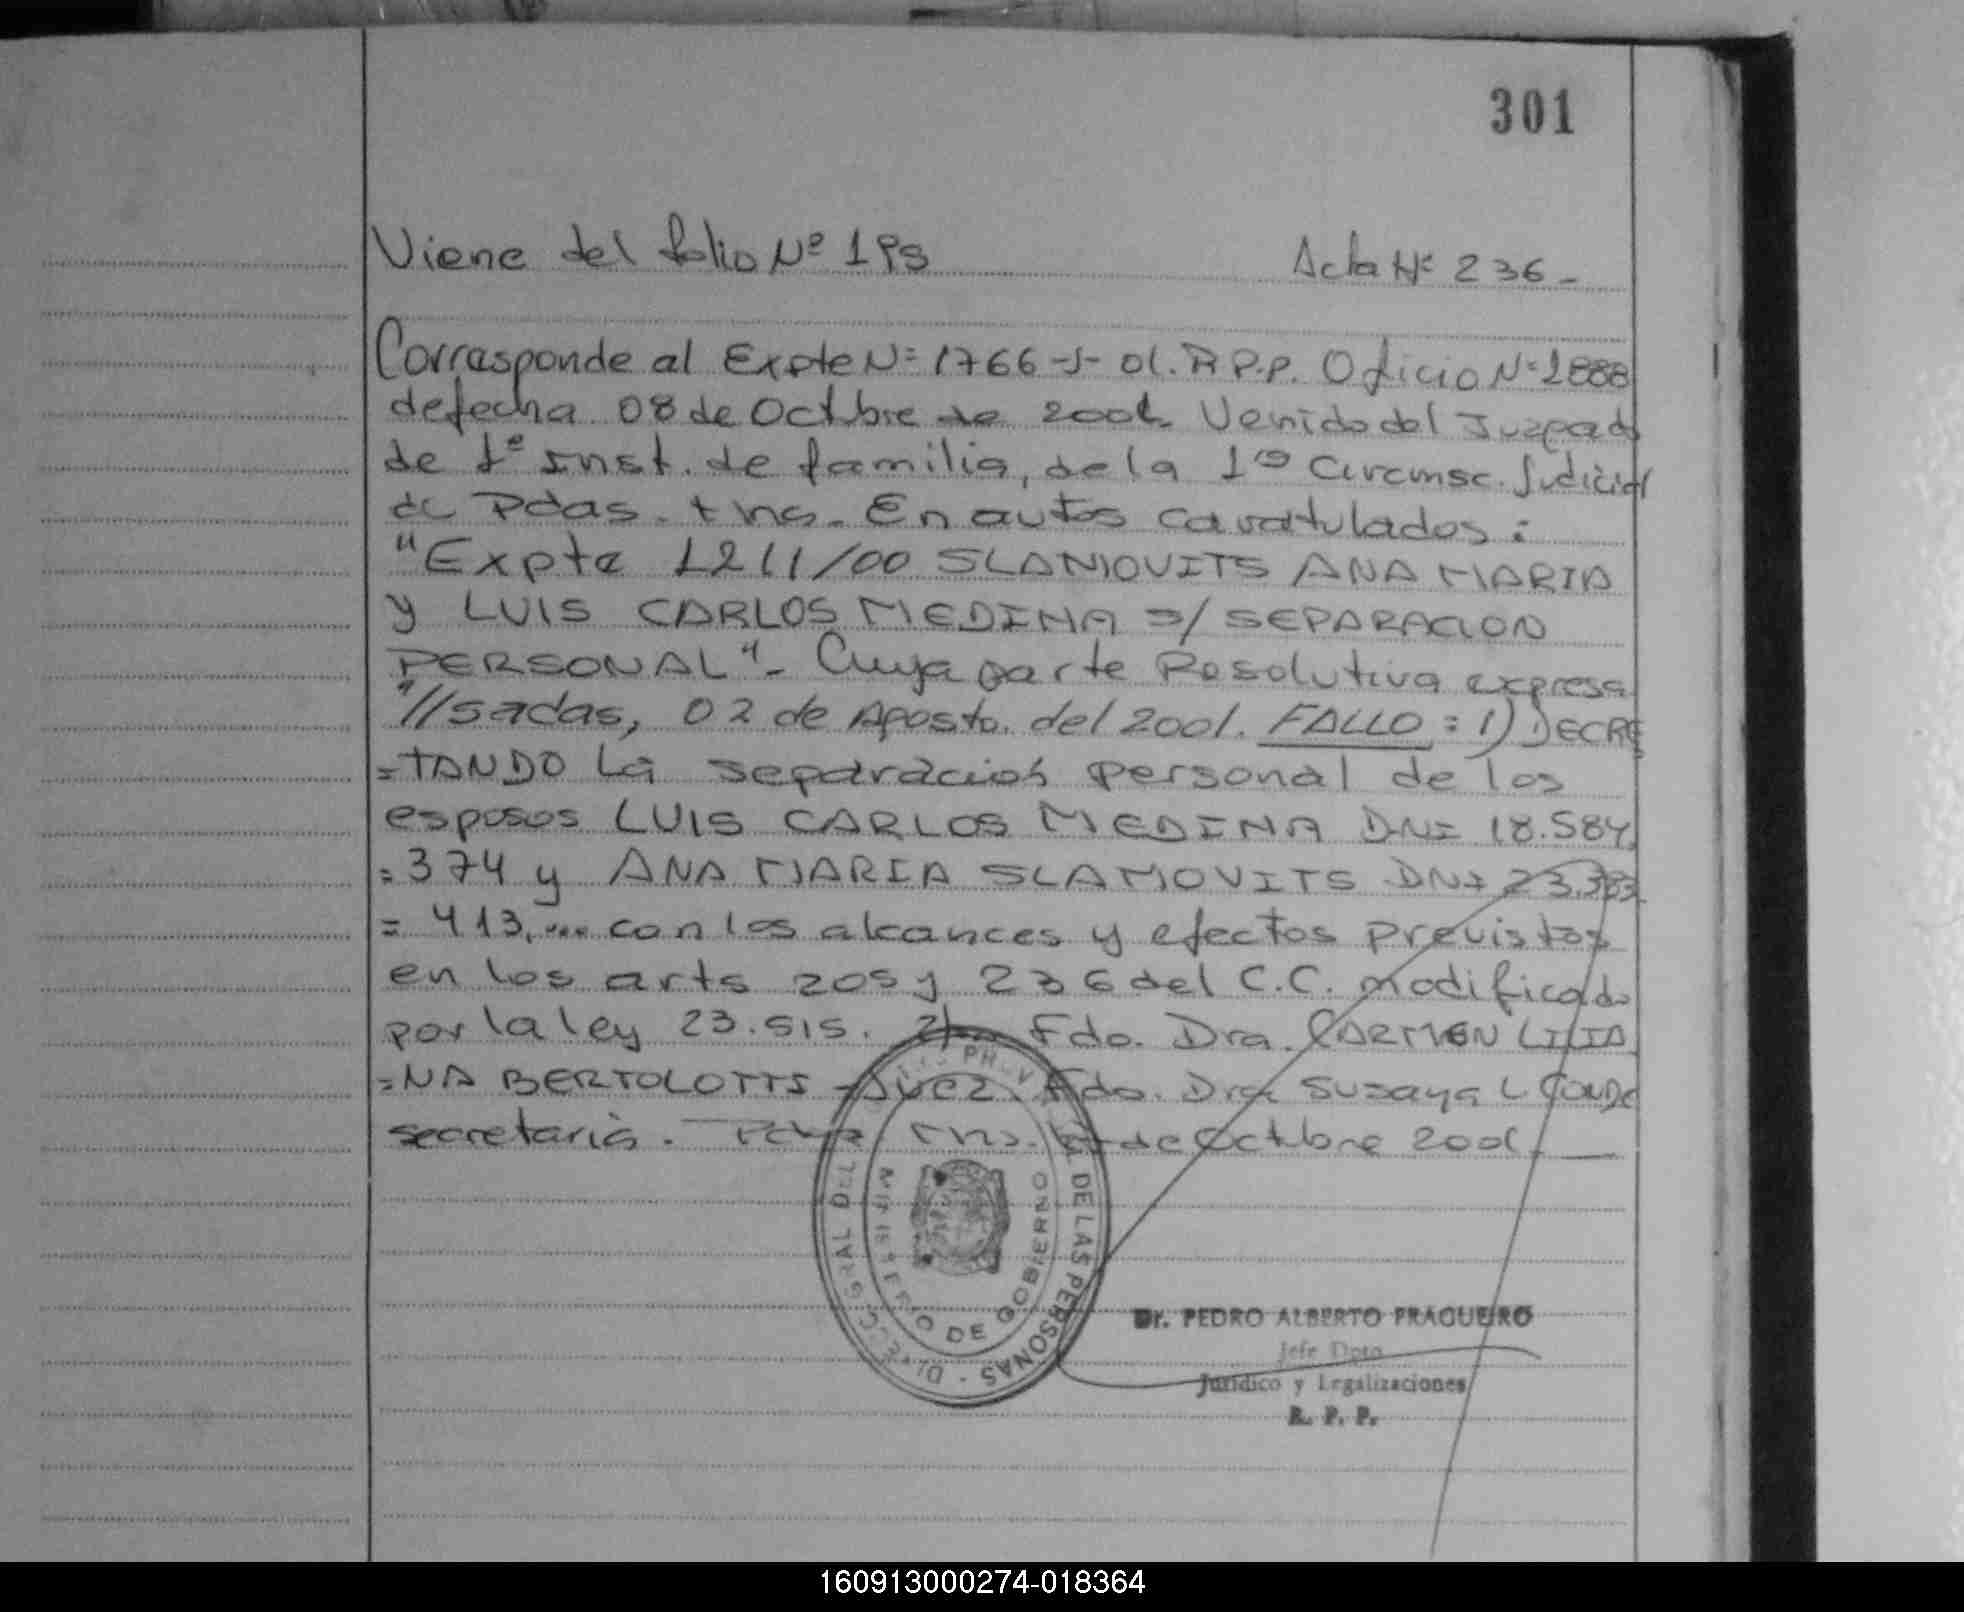 301
Viene del folio Nº 198 Acta Nº 236-
Corresponde al Expte N= 1766-S-01. R P.P. Oficio N=2888
de fecha 08 de Octbre de 2001. Venido del Juzgado
de 1º Inst. de familia, de la 1ª Circunsc. Judicial
de Pdas. Mnes. En autos caratulados:
"Expte 1211/00 SLAMOVITS ANA MARIA
y LUIS CARLOS MEDINA s/ SEPARACION
PERSONAL"- Cuya parte Resolutiva expresa
"//sadas, 02 de Agosto. del 2001. FALLO: 1) DECRE
=TANDO La separación personal de los
esposos LUIS CARLOS MEDINA DNI 18.584.
=374 y ANA MARIA SLAMOVITS DNI 23.383
= 413,... con los alcances y efectos previstos
en los arts 205 y 236 del C.C. modificado
por la ley 23.515. Fdo. Dra. CARMEN LILIA
=NA BERTOLOTTI - Juez. Fdo. Dra Susana L CONDE
secretaria. de Octbre 2001.
DIRECC. GRAL DEL DE LAS PERSONAS
MINISTERIO DE GOBIERNO
Dr. PEDRO ALBERTO FRAGUEIRO
Jefe Dpto
Jurídico y Legalizaciones
R. P. P.
160913000274-018364